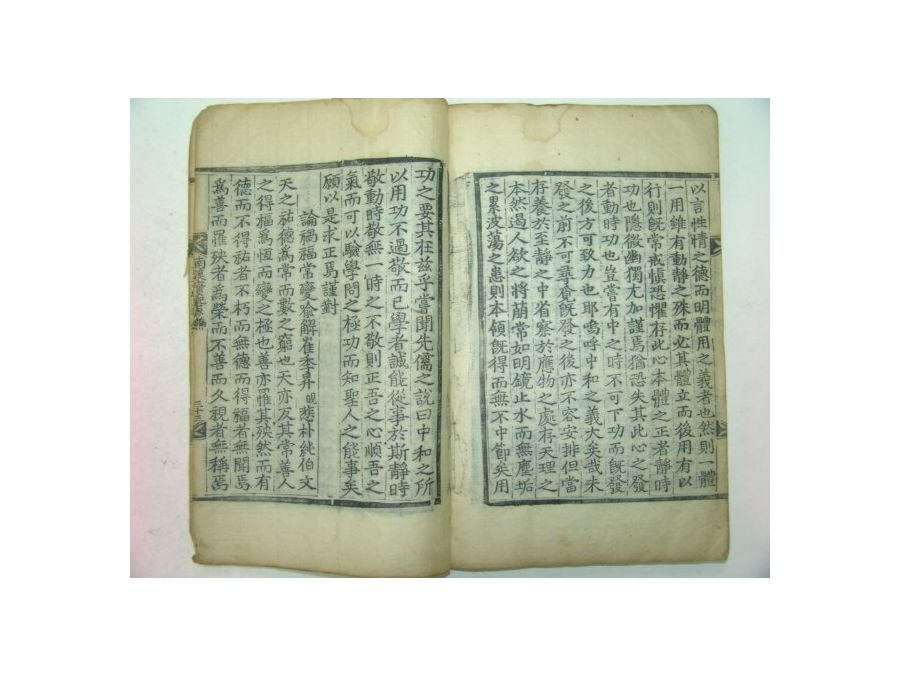 以言性情之德而明體用之義者也然則一體
一用雖有動靜之殊而必其體立而後用有以
行則旣常戒慎恐懼存此心本體之正者靜時
功也隱微幽獨尤加謹焉猶恐失其此心之發
者動時功也豈嘗有中之時不可下功而旣發
之後方可致力也耶嗚呼中和之義大矣哉未
發之前不可尋覓旣發之後亦不容安排但當
存養於至靜之中省察於應物之處存天理之
本然遏人欲之將萌常如明鏡止水而無塵垢
之累波蕩之患則本領旣得而無不中節矣用
功之要其在玆乎嘗聞先儒之說曰中和之所
以用功不過敬而已學者誠能從事於斯靜時
敬動時敬無一時之不敬則正吾之心順吾之
氣而可以驗學問之極功而知聖人之能事矣
願以是求正焉謹對
論禍福常變喩解崔季昇悲朴純伯文
天之祐德爲常而數之窮也天亦反其常善人
之得福爲恒而變之極也善亦罹其殃然而有
德而不得祐者不朽而無德而得福者無聞焉
爲善而罹殃者爲榮而不善而久視者無稱焉
二十三